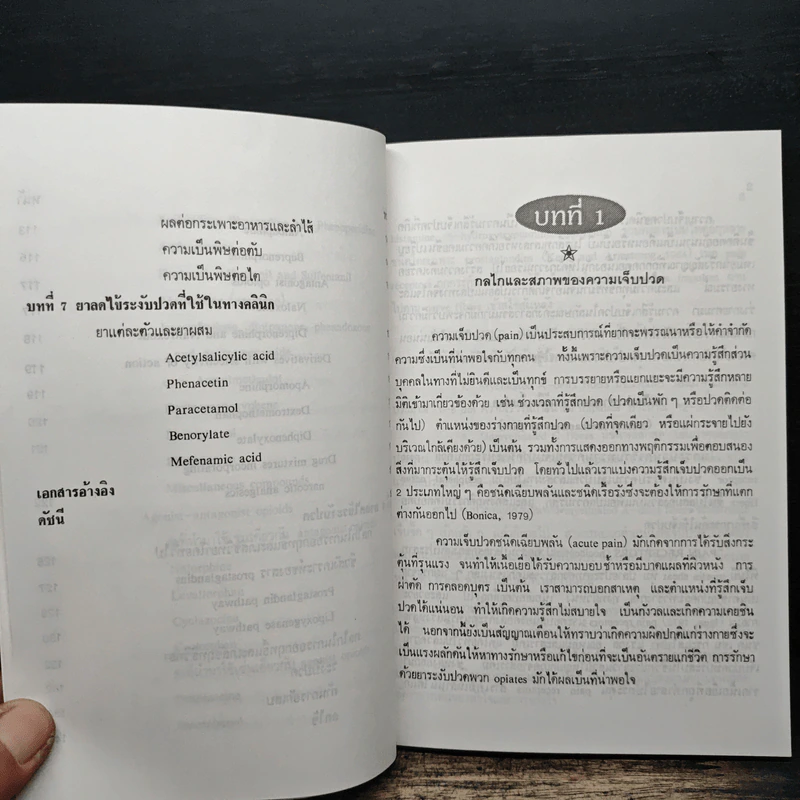 ผลต่อกระเพาะอาหารและลำไส้
ความเป็นพิษต่อตับ
ความเป็นพิษต่อไต
บทที่ 7 ยาลดไข้ระงับปวดที่ใช้ในทางคลินิก
ยาแต่ละตัวและยาผสม
Acetylsalicylic acid
Phenacetin
Paracetamol
Benorylate
Mefenamic acid
เอกสารอ้างอิง
ดัชนี
บทที่ 1
กลไกและสภาพของความเจ็บปวด
ความเจ็บปวด (pain) เป็นประสบการณ์ที่ยากจะพรรณนาหรือให้คำจำกัด
ความซึ่งเป็นที่น่าพอใจกับทุกคน ทั้งนี้เพราะความเจ็บปวดเป็นความรู้สึกส่วน
บุคคลในทางที่ไม่ยินดีและเป็นทุกข์ การบรรยายหรือแยกแยะจะมีความรู้สึกหลาย
มิติเข้ามาเกี่ยวข้องด้วย เช่น ช่วงเวลาที่รู้สึกปวด (ปวดเป็นพัก ๆ หรือปวดติดต่อ
กันไป) ตำแหน่งของร่างกายที่รู้สึกปวด (ปวดที่จุดเดียว หรือแผ่กระจายไปยัง
บริเวณใกล้เคียงด้วย) เป็นต้น รวมทั้งการแสดงออกทางพฤติกรรมเพื่อตอบสนอง
สิ่งที่มากระตุ้นให้รู้สึกเจ็บปวด โดยทั่วไปแล้วเราแบ่งความรู้สึกเจ็บปวดออกเป็น
2 ประเภทใหญ่ ๆ คือชนิดเฉียบพลันและชนิดเรื้อรังซึ่งจะต้องให้การรักษาที่แตก
ต่างกันออกไป (Bonica, 1979)
ความเจ็บปวดชนิดเฉียบพลัน (acute pain) มักเกิดจากการได้รับสิ่งกระ
ตุ้นที่รุนแรง จนทำให้เนื้อเยื่อได้รับความบอบช้ำหรือมีบาดแผลที่ผิวหนัง การ
ผ่าตัด การคลอดบุตร เป็นต้น เราสามารถบอกสาเหตุ และตำแหน่งที่รู้สึกเจ็บ
ปวดได้แน่นอน ทำให้เกิดความรู้สึกไม่สบายใจ เป็นกังวลและเกิดความเคยชิน
ได้ นอกจากนี้ยังเป็นสัญญาณเตือนให้ทราบว่าเกิดความผิดปกติแก่ร่างกายซึ่งจะ
เป็นแรงผลักดันให้หาทางรักษาหรือแก้ไขก่อนที่จะเป็นอันตรายแก่ชีวิต การรักษา
ด้วยยาระงับปวดพวก opiates มักได้ผลเป็นที่น่าพอใจ